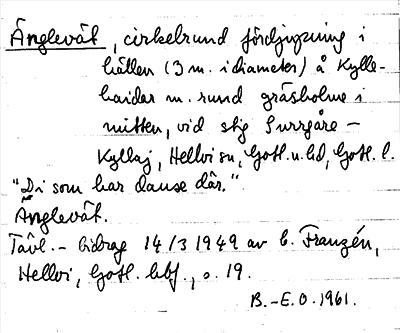 Änglevät, cirkelrund fördjupning i
hällen (3 m. i diameter) å Kylle-
haidar m. rund gräsholme i
mitten, vid stig Surrgåre –
Kyllaj, Hellvi sn, Gotl. n. hd, Gotl. l.
"Di som har danse där."
Änglevät.
Tävl. - bidrag 14/3 1949 av C. Franzén,
Hellvi, Gotl. hbf., s. 19.
B.-E.O. 1961.